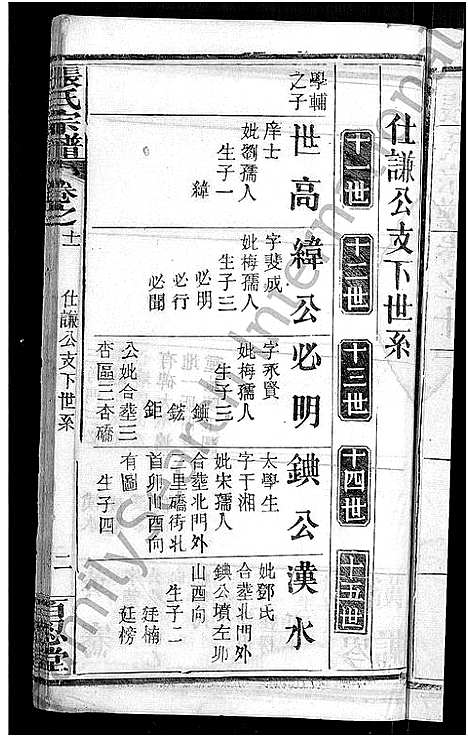 仕謙公支下世系
十一世
十二世
十三世
十四世
十五世
學輔
之子
世高
庠士
妣劉孺人
生子一
緯
緯公
字斐成
妣梅孺人
生子三
必明
必行
必聞
必明
字永賢
妣梅孺人
生子三
鉉
鉅
公妣合塟三
杏區三杏礄
鍈公
太學生
字干湘
妣宋孺人
合塟北門外
三里礄街北
首卯山酉向
有圖
生子四
漢水
妣鄧氏
合塟北門外
鍈公墳左卯
山酉向
生子二
廷楠
廷榜
張氏宗譜
卷之十一
仕謙公支下世系
二
百忍堂